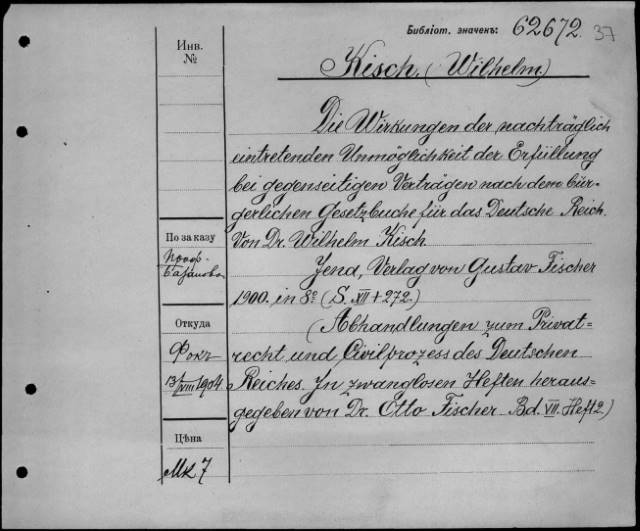 Библіот. значенъ: 62672. 37
Инв.
№
Kisch. (Wilhelm)
Die Wirkungen der nachträglich
eintretenden Unmöglichkeit der Erfüllung
bei gegenseitigen Verträgen nach dem bür-
gerlichen Gesetzbuche für das Deutsche Reich.
Von Dr. Wilhelm Kisch.
Jena, Verlag von Gustav Fischer
1900. in 8° (S. XII + 272.)
(Abhandlungen zum Privat=
recht und Civilprozess des Deutschen
Reiches. In zwanglosen Heften heraus=
gegeben von Dr. Otto Fischer Bd. VII. Heft 2)
По заказу
Проф.
Базанова
Откуда
Фокъ
13/VIII 1904
Цѣна
Mk 7